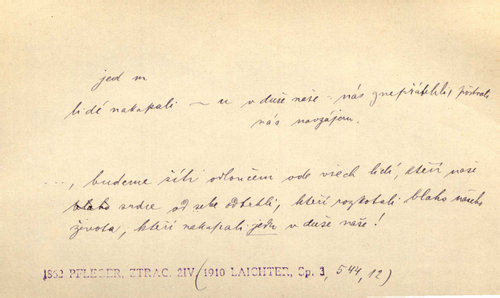 jed m
lidé nakapali – u v duše naše – nás znepřátelili, poštvali
nás navzájem.
..., budeme žíti odloučeni ode všech lidí, kteří naše
blaho srdce od sebe odtrhli, kteří rozkotali blaho našeho
života, kteří nakapali jedu v duše naše!
1862 PFLEGER, ZTRAC. ŽIV (1910 LAICHTER, Sp. 3, 544, 12)